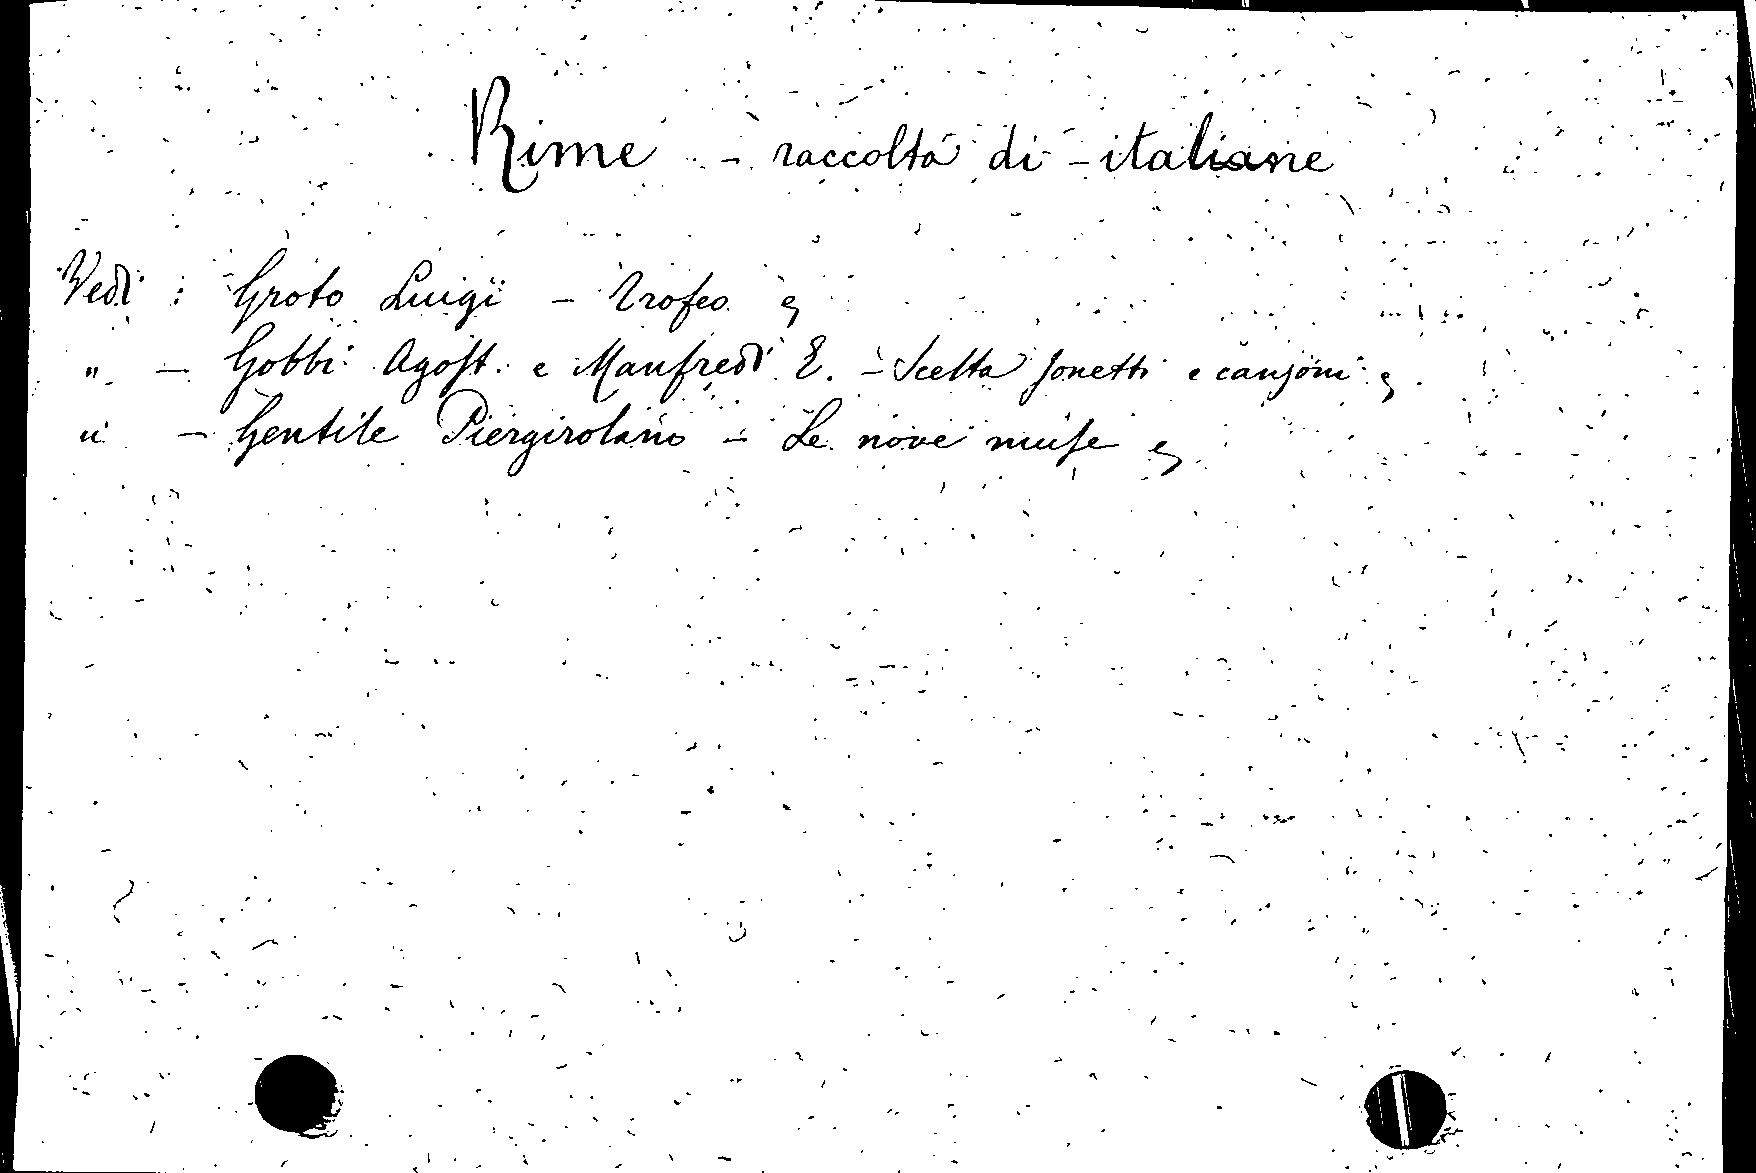 Rime - raccolta di - italiane
Vedi : Groto Luigi - Trofeo
" - Gobbi Agost. e Manfredi E. - Scelta sonetti e canzoni
" - Gentile Piergirolamo - Le nove muse